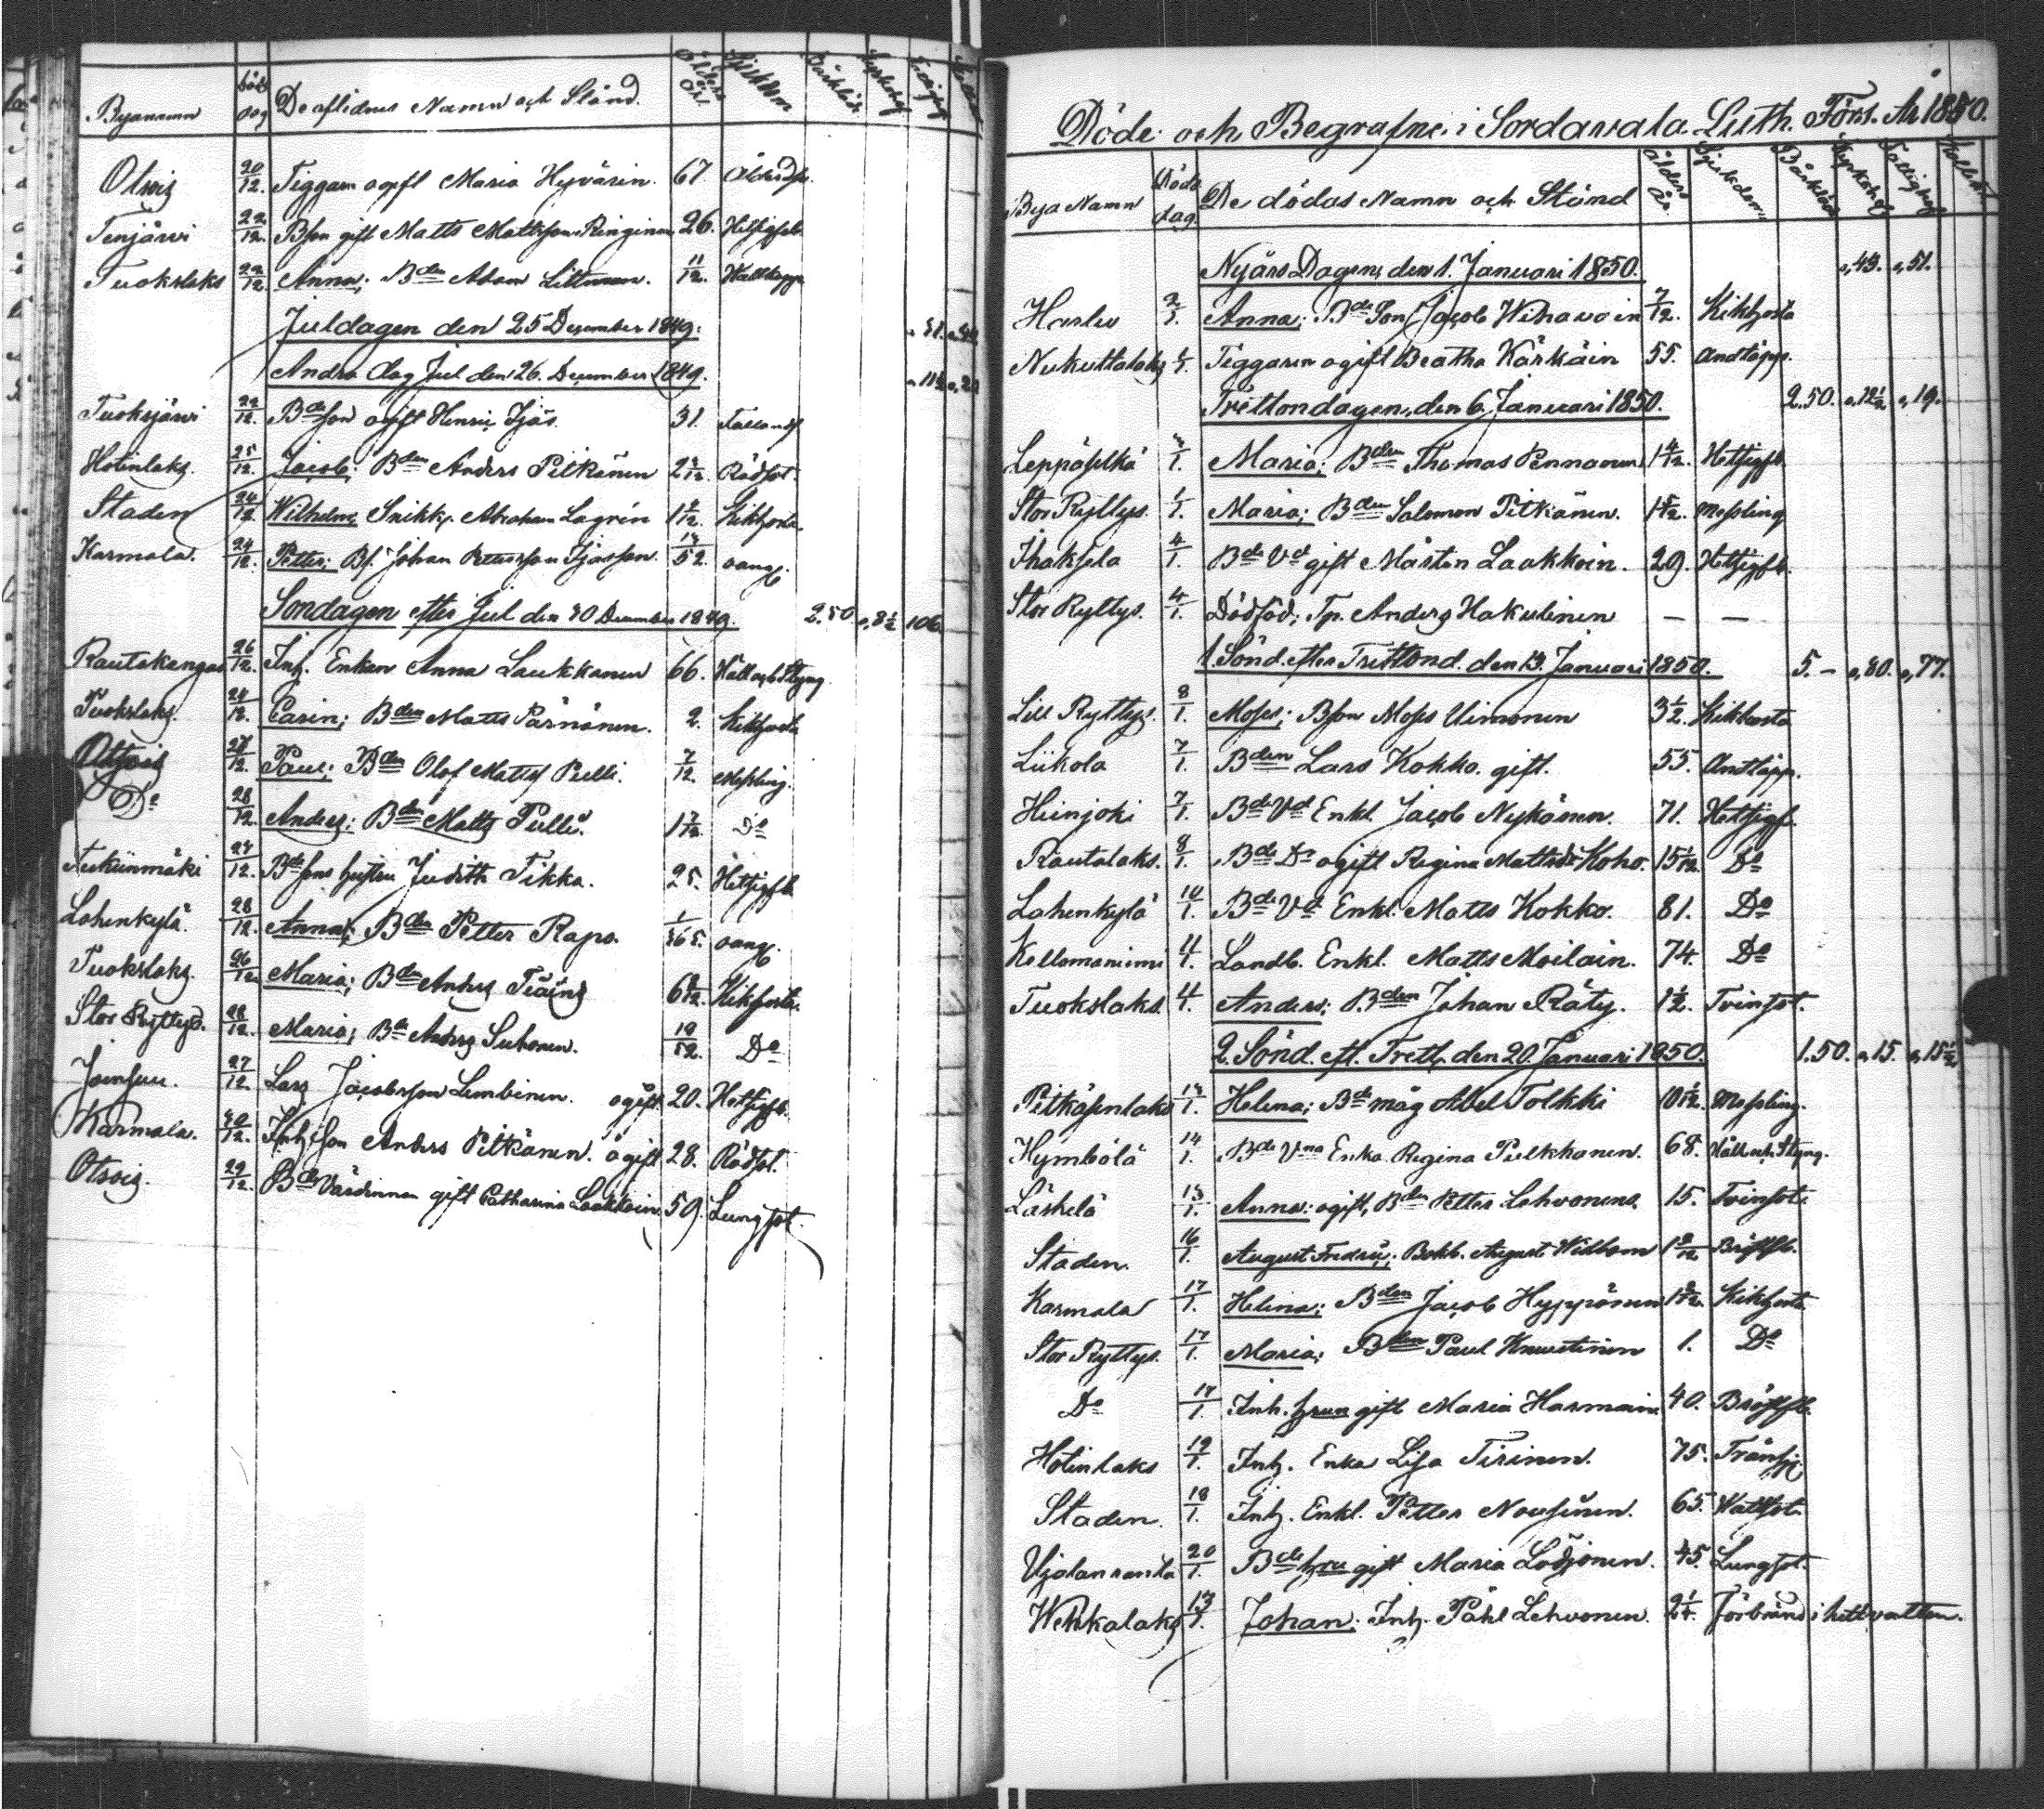 Byanamn Döds dag De aflidnes Namn och Stånd. Ålder År Sjukdom Bårkläde Kyrkohof Fattighof Kollekt
Otsois 20/12. Tiggarn ogift Maria Hyvärin. 67 Ålderds.
Tenjärvi 22/12. Bson gift Matts Mattsson Ringinen 26. Hetsigfeb.
Tuokslaks 22/12 Anna; Bden Adam Littunen. 11/12. Wattkopp.
Juldagen den 25 December 1849.
Andra dag Jul den 26. December 1849.
Tuoksjärvi 22/12. Bdeson ogift Henric Ijäs. 31.
Hotinlaks. 25/12. Jacob; Bden Anders Pitkänen Rödsot.
Staden 24/12 Wilhelm; Snikk. Abraham Lagrén Kikhosta
Karmala. 24/12. Petter; Bs. Johan Pettersson Ijässon. 13/52. oang.
Söndagen efter Jul den 30 December 1849. 2.50 „8½ 106.
Rautakangas 26/12. Inh. Enkan Anna Laukkanen 66. Håll och Styng
Tuokslaks. 27/12. Carin; Bden Matts Pärnänen. 2. Kikhosta
Otsois 27/12. Paul; Bden Olof Matts Pulli. 7/12. Messling.
Do 28/12. Anders; Bden Matts Pulli. Do
27/12. Bdesons hustru Judith Tikka. 25. Hetsigfb
Lahenkylä. 28/12. Anna; Bden Petter Rapo. 1/365. oang.
Tuokslaks. 26/12 Maria; Bden Anders Kikhosta.
Stor Ryttys. 28/12. Maria; Bde Anders Suhonen. 10/52. Do
Joensuu. 27/12. Lars Jacobsson Lembinen. ogift 20. Hetsigfb.
Karmala. 30/12. Inh. son Anders Pitkänen. ogift 28. Rödsot.
Otsois. 29/12. Bde Värdinnan gift Catharina Laakkoin 59. Lungsot.
Döde och Begrafne i Sordavala Luth. Förs. År 1850.
Bya Namn Döds dag. De dödas Namn och Stånd Ålder år. Sjukdom Bårkläde Kyrkohof Fattighof Kollekt
Nyårs Dagen, den 1. Januari 1850. „43. „51.
Harlu 2/1. Anna; Bde Son Jacob Wihavain 7/12. Kikhosta
Nukuttalaks 1/1. Tiggaren ogift Beatha Kärkäin 55. Andtäpp.
Trettondagen, den 6. Januari 1850. 2.50. „12½ „19.
Leppäselkä 3/1. Maria; Bden Thomas Pennanen 1 4/12. Hetsigfb.
Stor Ryttys. 1/1. Maria; Bden Salomon Pitkänen. 1 5/12. Messling
Ihaksela 4/1. Bde Vd gift Mårten Laakkoin. 29. Hetsigfb.
Stor Ryttys. 4/1. Dödföd; Tp. Anders Hakulinen — —
1. Sönd. efter Trettond. den 13. Januari 1850. 5.— „80. „77.
Lill Ryttys. 8/1. Moses; Bson Moses Uimonen 3½. Kikhosta
Liikola 7/1. Bden Lars Kokko. gift. 55. Andtäpp.
Heinjoki 7/1. Bde Vd Enkl. Jacob Nykänen. 71. Hetsigf.
Rautalaks. 8/1. Bde Dr ogift Regina Mattsdr Koho. 15 1/12. Do
Lahenkylä 10/1. Bde Vd Enkl. Matts Kokko. 81. Do
Kellomaniemi 11/1. Landb. Enkl. Matts Moilain. 74. Do
Tuokslaks. 11/1. Anders; Bden Johan Räty. 1½. Tvinsot.
2. Sönd. eft. Trett. den 20. Januari 1850. 1.50. „15. „15½
Pitkäsenlaks 13/1. Helena; Bde måg Abel Tolkki 10 1/12. Messling.
Hymbölä 14/1. Bde Vna Enka Regina Pulkkanen. 68. Håll och Styng.
Läskelä 13/1. Anna; ogift, Bden Petter Lehvonens. 15. Tvinsot.
Staden. 16/1. August Fredric; Bokb. August Widbom Bröstfb.
Karmala 17/1. Helena; Bden Jacob Hyppönen Kikhosta
Stor Ryttys. 17/1. Maria; Bden Paul Knuutinen 1. Do
Do 17/1. Inh. hrun gift Maria Harmain. 40. Bröstfb.
Hotinlaks 19/1. Inh. Enka Lisa Tirinen. 75. Tränsj.
Staden. 18/1. Inh. Enkl. Petter Nousinen. 65. Wattsot.
Ujalanranta 20/1. Bde hru gift Maria Lödjönen. 45. Lungsot.
Wehkalaks 13/1. Johan; Inh. Påhl Lehvonen. 2¼. Förbränd i hett vatten.